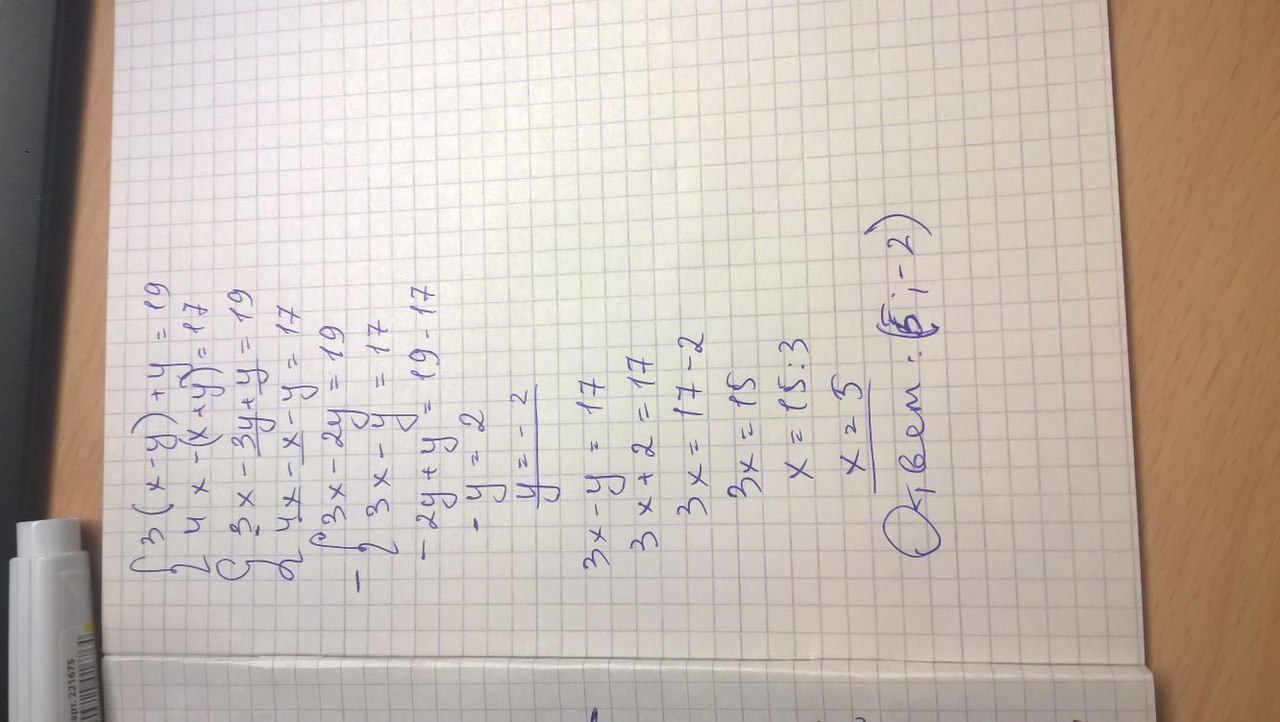 { 3(x-y)+y=19
4x-(x+y)=17
{ 3x-3y+y=19
4x-x-y=17
- { 3x-2y=19
3x-y=17
-2y+y=19-17
-y=2
y=-2
3x-y=17
3x+2=17
3x=17-2
3x=15
x=15:3
x=5
Ответ: (5;-2)
арт. 221675